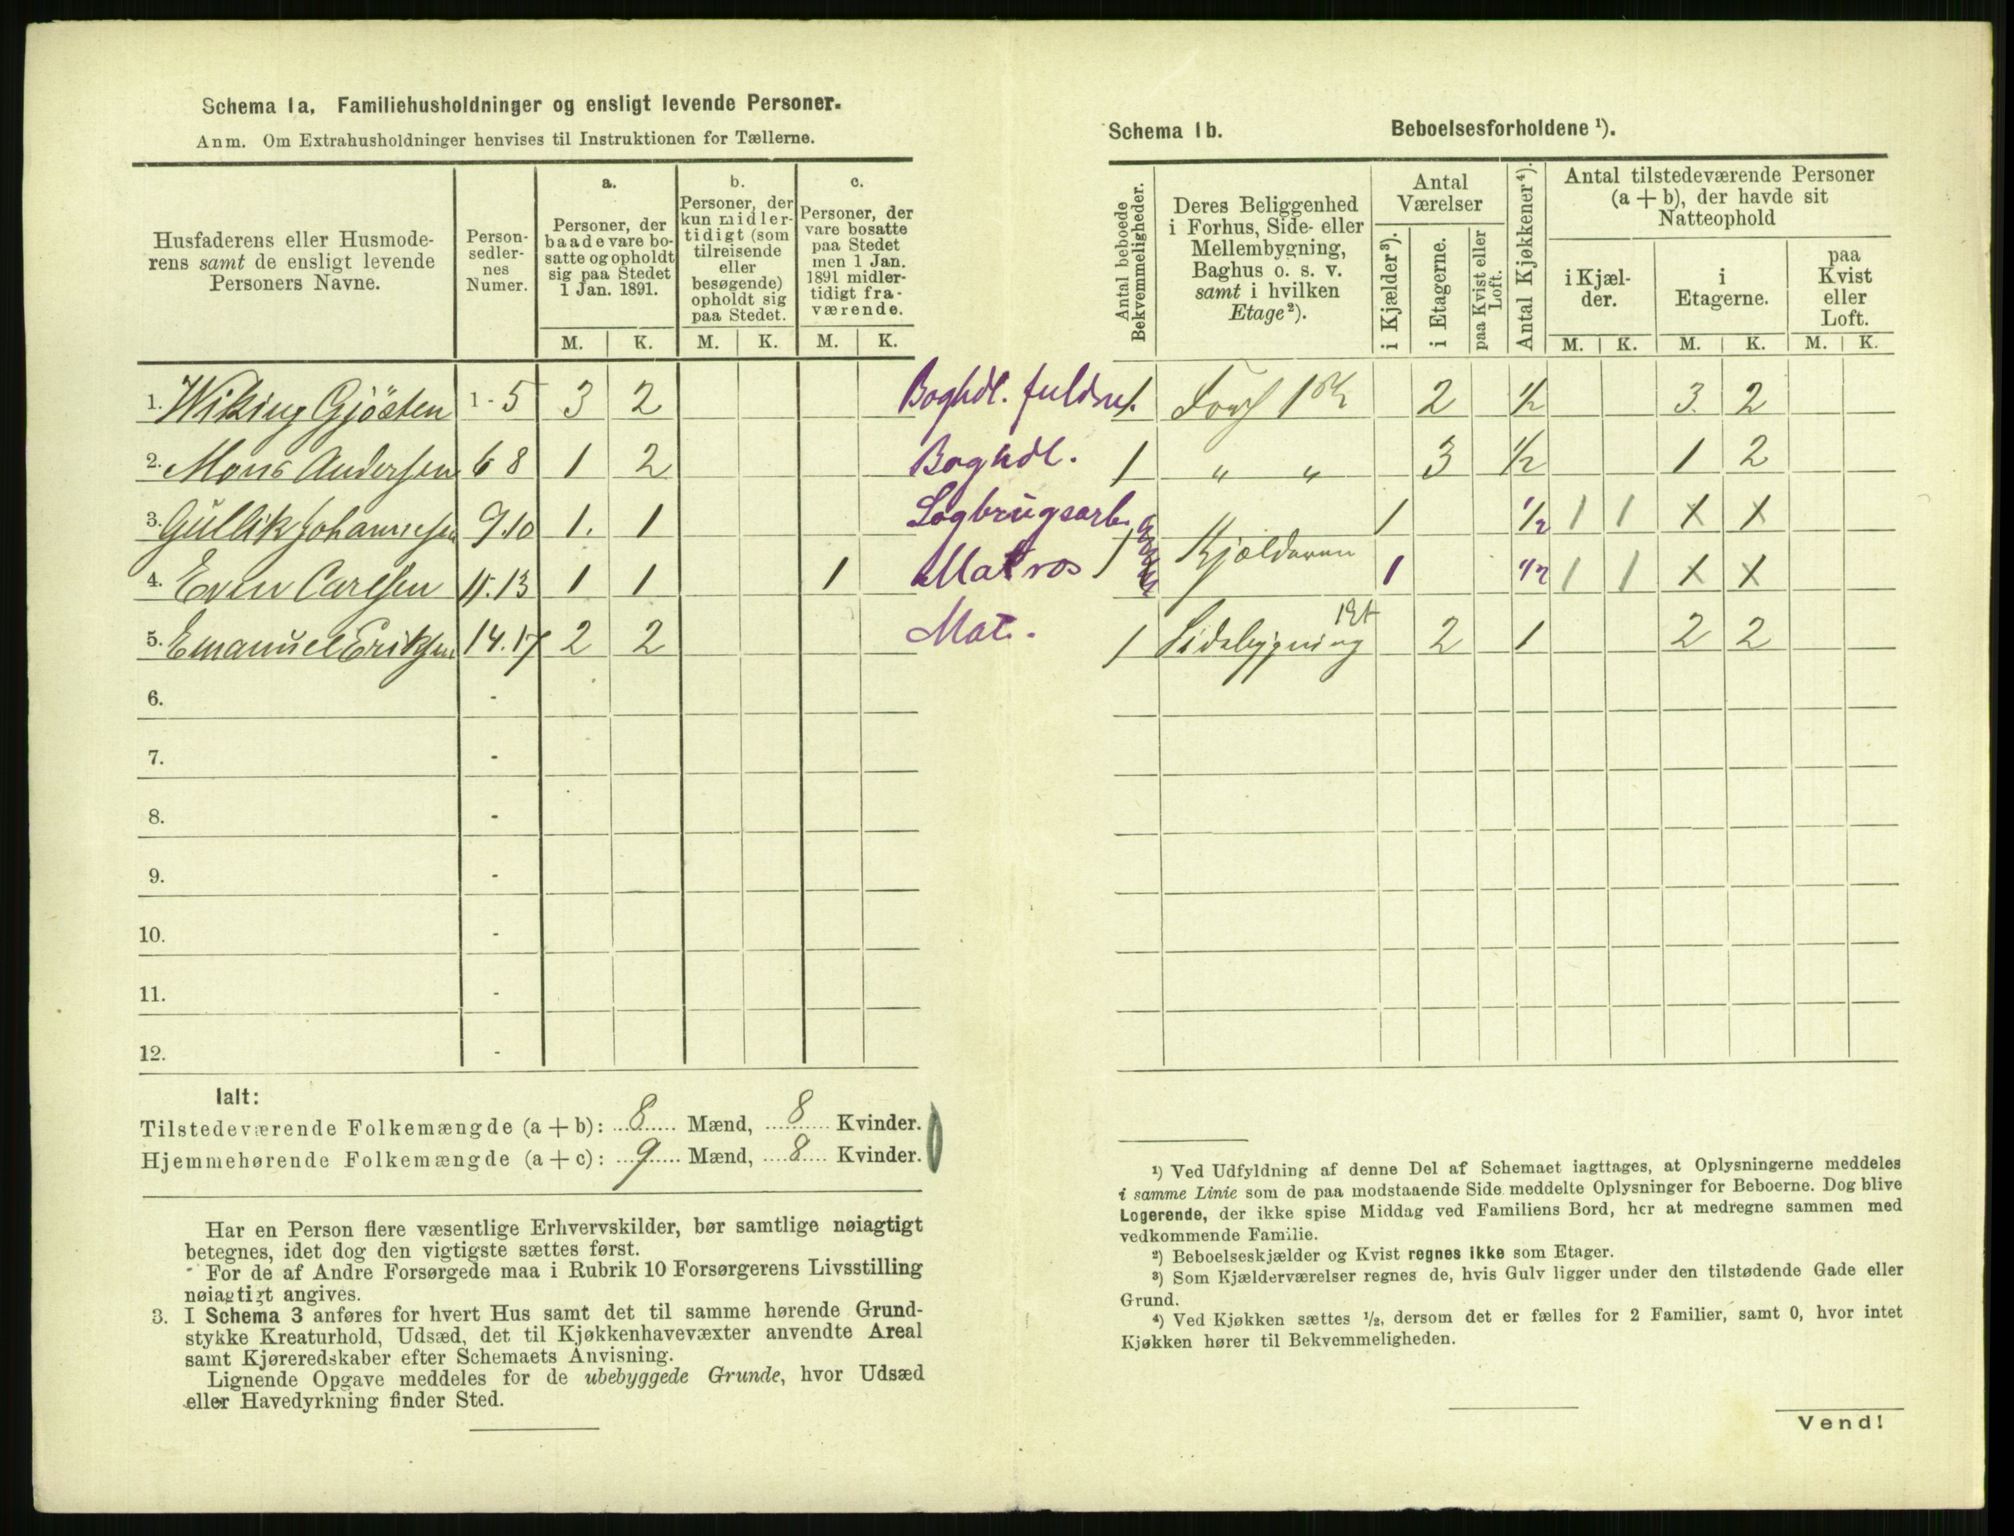 Schema 1a. Familiehusholdninger og ensligt levende Personer.
Anm. Om Extrahusholdninger henvises til Instruktionen for Tællerne.
Husfaderens eller Husmode-
rens samt de ensligt levende
Personers Navne.
Person-
sedler-
nes
Numer.
a.
Personer, der
baade vare bo-
satte og opholdt
sig paa Stedet
1 Jan. 1891.
b.
Personer, der
kun midler-
tidigt (som
tilreisende
eller
besøgende)
opholdt sig
paa Stedet.
c.
Personer, der
vare bosatte
paa Stedet
men 1 Jan.
1891 midler-
tidigt fra-
værende.
M. K. M. K. M. K.
1. Wiking Gjösten 1-5 3 2
2. Mons Andersen 6 8 1 2
3. Gullik Johannesen 9.10 1. 1
4. Even Carlsen 11.13 1 1 1
5. Emanuel Eriksen 14.17 2 2
6. -
7. -
8. -
9. -
10. -
11. -
12. -
Ialt:
Tilstedeværende Folkemængde (a + b): 8 Mænd, 8 Kvinder.
Hjemmehørende Folkemængde (a + c): 9 Mænd, 8 Kvinder.
Har en Person flere væsentlige Erhvervskilder, bør samtlige nøiagtigt
betegnes, idet dog den vigtigste sættes først.
For de af Andre Forsørgede maa i Rubrik 10 Forsørgerens Livsstilling
nøiagtigt angives.
3. I Schema 3 anføres for hvert Hus samt det til samme hørende Grund-
stykke Kreaturhold, Udsæd, det til Kjøkkenhavevæxter anvendte Areal
samt Kjøreredskaber efter Schemaets Anvisning.
Lignende Opgave meddeles for de ubebyggede Grunde, hvor Udsæd
eller Havedyrkning finder Sted.
Schema 1b. Beboelsesforholdene ¹).
Antal beboede
Bekvemmeligheder.
Deres Beliggenhed
i Forhus, Side- eller
Mellembygning,
Baghus o. s. v.
samt i hvilken
Etage²).
Antal
Værelser
i Kjælder³).
i Etagerne.
paa Kvist eller
Loft.
Antal Kjøkkener⁴).
Antal tilstedeværende Personer
(a + b), der havde sit
Natteophold
i Kjæl-
der.
i
Etagerne.
paa
Kvist
eller
Loft.
M. K. M. K. M. K.
Boghdl. fuldm. 1 1 2 ½ 3. 2
Boghdl. 1 " " 3 ½ 1 2
Sagbrugsarb. 1 ½ 1 1 x x
Matros 1 Kjælderen 1 ½ 1 1 x x
Mat. 1 Sidebygning 1 Et 2 1 2 2
¹) Ved Udfyldning af denne Del af Schemaet iagttages, at Oplysningerne meddeles
i samme Linie som de paa modstaaende Side meddelte Oplysninger for Beboerne. Dog blive
Logerende, der ikke spise Middag ved Familiens Bord, her at medregne sammen med
vedkommende Familie.
²) Beboelseskjælder og Kvist regnes ikke som Etager.
³) Som Kjælderværelser regnes de, hvis Gulv ligger under den tilstødende Gade eller
Grund.
⁴) Ved Kjøkken sættes ½, dersom det er fælles for 2 Familier, samt 0, hvor intet
Kjøkken hører til Bekvemmeligheden.
Vend!